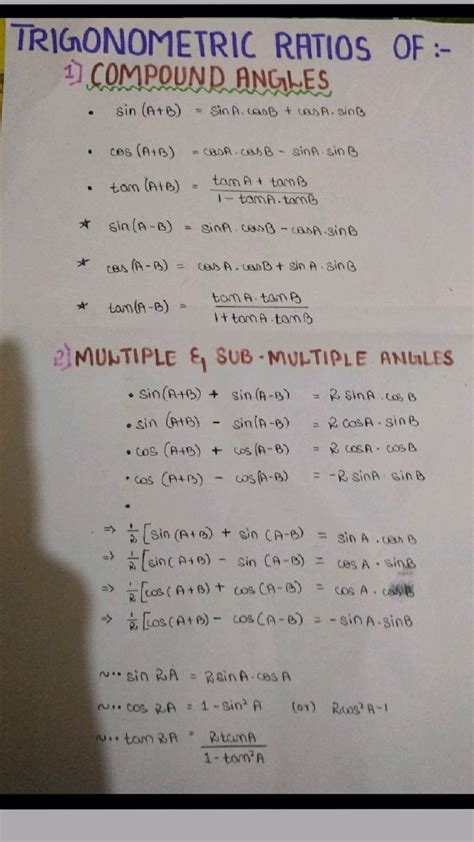 TRIGONOMETRIC RATIOS OF :-
1] COMPOUND ANGLES
• sin (A+B) = sinA.cosB + cosA.sinB
• cos (A+B) = cosA.cosB - sinA.sinB
• tan (A+B) = tanA + tanB / 1 - tanA.tanB
* sin(A-B) = sinA.cosB - cosA.sinB
* cos(A-B) = cosA.cosB + sinA.sinB
* tan(A-B) = tanA.tanB / 1 + tanA.tanB
2] MULTIPLE & SUB-MULTIPLE ANGLES
• sin(A+B) + sin(A-B) = 2 sinA.cosB
• sin (A+B) - sin(A-B) = 2 cosA.sinB
• cos (A+B) + cos(A-B) = 2 cosA.cosB
• cos (A+B) - cos(A-B) = -2 sinA.sinB
•
⇒ 1/2 [sin(A+B) + sin (A-B) = sinA.cosB
⇒ 1/2 [sin(A+B) - sin (A-B) = cosA.sinB
⇒ 1/2 [cos(A+B) + cos(A-B) = cosA.cosB
⇒ 1/2 [cos(A+B) - cos(A-B) = -sinA.sinB
~•• sin 2A = 2sinA.cosA
~•• cos 2A = 1-sin² A (or) 2cos² A-1
~•• tan 2A = 2tanA / 1-tan²A